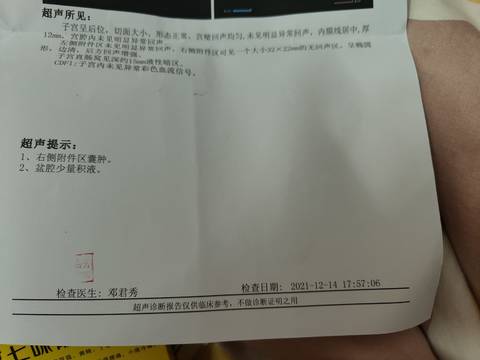 超声所见:
子宫呈后位, 切面大小, 形态正常, 宫壁回声均匀, 未见明显异常回声, 内膜线居中, 厚
12mm, 宫腔内未见明显异常回声。
左侧附件区未见明显异常回声, 右侧附件区可见一个大小32×22mm的无回声区, 呈椭圆
形, 边清, 后方回声增强。
子宫直肠窝见深约15mm液性暗区。
CDFI: 子宫内未见异常彩色血流信号。
超声提示:
1、右侧附件区囊肿。
2、盆腔少量积液。
检查医生: 邓君秀
检查日期: 2021-12-14 17:57:06
超声诊断报告仅供临床参考, 不做诊断证明之用